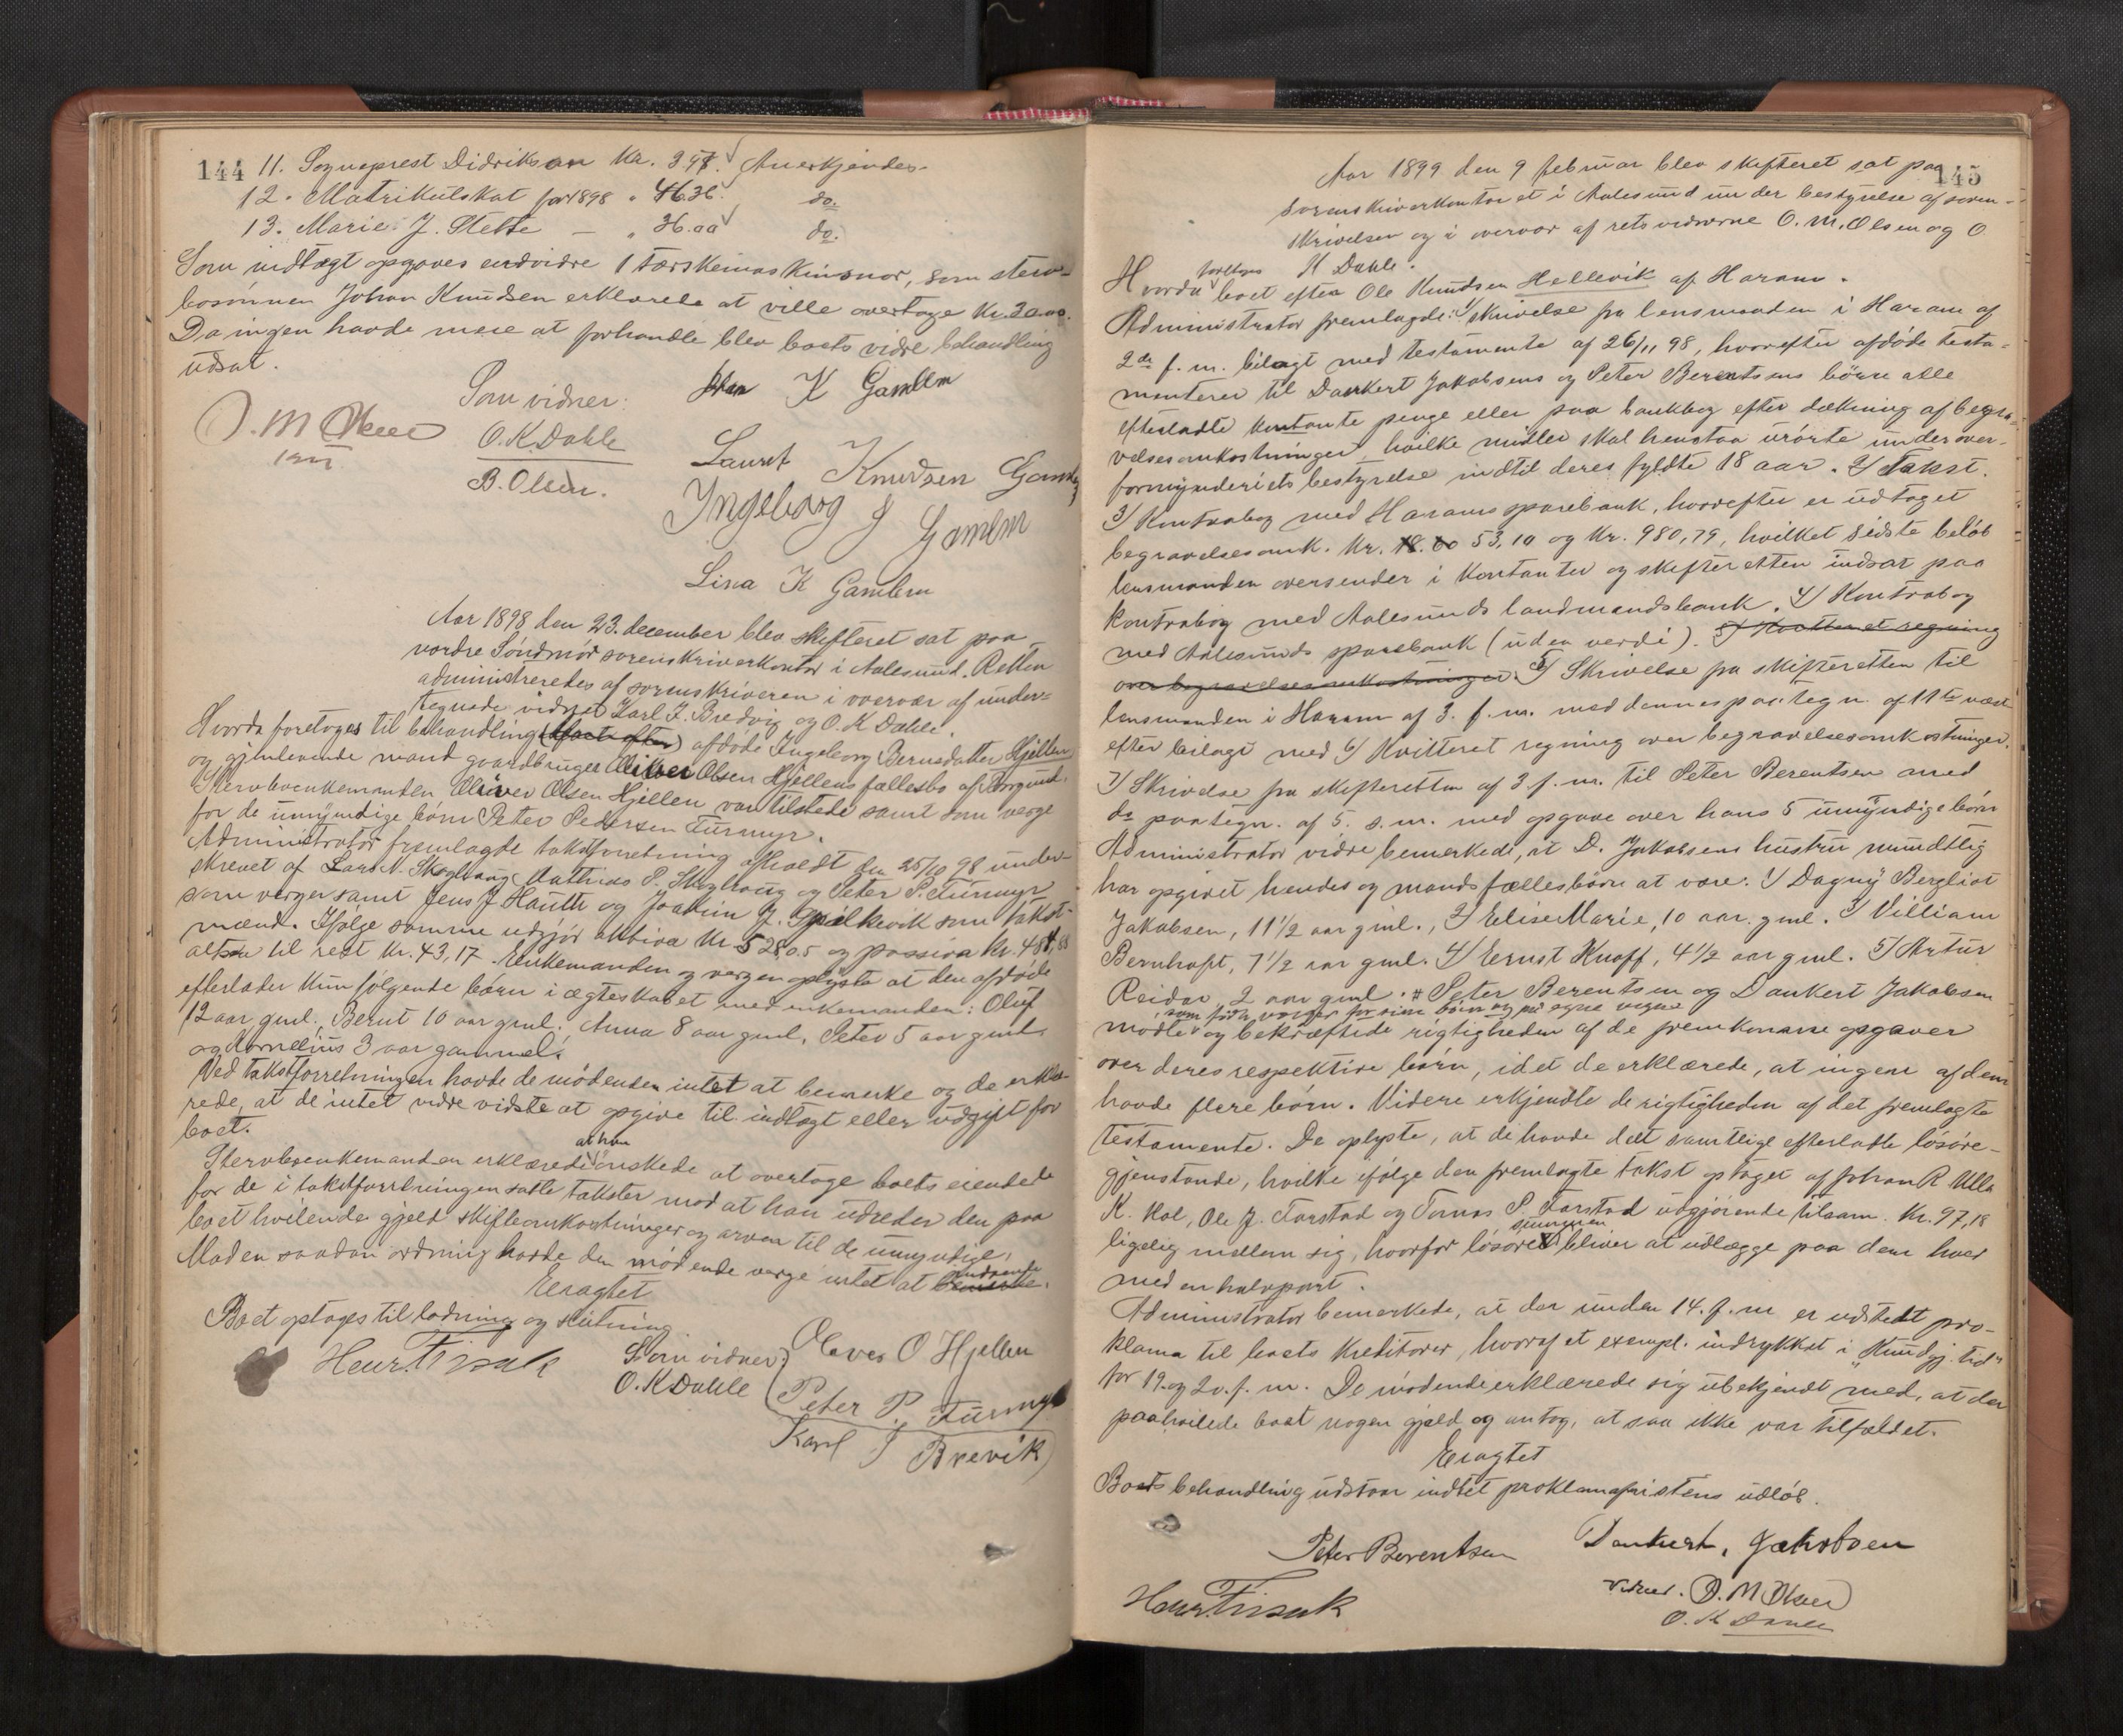 144
11. Sogneprest Didriksen Kr. 3 47. Anerkjendes.
12. Matrikulskat for 1898 " 46.36. do.
13. Marie J. Stette — " 36.00 do.
Som indtægt opgaves endvidre 1 tærskemaskinsnor, som sterv-
bosønnen Johan Knudsen erklærede at ville overtage Kr. 20.00.
Da ingen havde mere at forhandle blev boets vidre behandling
udsat.
Som vidner:
O. M Olsen
O. K Dahle
B. Olsen.
K Gamlem
Laurits Knudsen
Ingeborg J Gamlem
Lina K Gamlem
Aar 1898 den 23. december blev skifteret sat paa
nordre Søndmør sorenskriverkontor i Aalesund. Retten
administreredes af sorenskriveren i overvær af under-
tegnede vidner Karl J. Bredvig og O. K Dahle.
Hvorda foretoges til behandling afdøde Ingeborg Berntsdatter Hjellen
og gjenlevende mand gaardbruger Oliver Olsen Hjellens fællesbo af Borgund.
Stervboenkemanden Oliver Olsen Hjellen var tilstede samt som verge
for de umyndige børn Peter Pedersen Furmyr.
Administrator fremlagde takstforretning afholdt den 25/10 98 under-
skrevet af Lars N. Skoglhaug, Mathias P. Skoglhaug og Peter P. Furmyr
som verger samt Jens J Hauth og Joakim J. Spilkevik som takst-
mænd. Ifølge samme udgjør aktiva Kr. 528,05 og passiva Kr. 484,88
altsaa til rest Kr. 43,17. Enkemanden og vergen oplyste at den afdøde
efterlader kun følgende børn i ægteskabet med enkemanden: Oluf
12 aar gml., Bernt 10 aar gml. Anna 8 aar gml, Peter 5 aar gml
og Kornelius 3 aar gammel.
Ved takstforretningen havde de mødende intet at bemerke og de erklæ-
rede, at de intet vidre vidste at opgive til indtægt eller udgift for
boet.
Stervboenkemanden erklærede at han ønskede at overtage boets eiendele
for de i takstforretningen satte takster mod at han udreder den paa
boet hvilende gjæld skifteomkostninger og arven til de umyndige.
Mod en saadan ordning havde den mødende verge intet at indvende.
Eragtet
Boet optages til lodning og slutning
Henr. Finsak
Som vidner:
O. K Dahle
Oliver O Hjellen
Peter P. Furmyr
Karl J Brevik
145
Aar 1899 den 9 februar blev skifteret sat paa
sorenskriverkontoret i Aalesund under bestyrelse af soren-
skriveren og i overvær af retsvidnerne O. M. Olsen og O
K Dahle.
Hvorda foretoges boet efter Ole Knudsen Hellevik af Haram.
Administrator fremlagde: 1) skrivelse fra lensmanden i Haram af
2de f. m. bilagt med testamente af 26/11 98, hvorefter afdøde testa-
menterer til Dankert Jakobsens og Peter Berentsens børn alle
efterladte kontante penge eller paa bankbog efter dækning af begra-
velsesomkostninger, hvilke midler skal henstaa urørte under over-
formynderiets bestyrelse indtil deres fyldte 18 aar. 2) Takst.
3) Kontrabog med Harams sparebank, hvorefter er udtaget
begravelsesomk. Kr. 53,10 og Kr. 980,79, hvilket sidste beløb
lensmanden oversender i kontanter og skifteretten indsat paa
kontrabog med Aalesunds landmandsbank. 4) Kontrabog
med Aalesunds sparebank (uden verdi). 5) Kvitteret regning
over begravelsesomkostninger. 5) Skrivelse fra skifteretten til
lensmanden i Haram af 3. f. m. med dennes paategn. af 11te næst
efter bilagt med 6) Kvitteret regning over begravelsesomkostninger.
7) Skrivelse fra skifteretten af 3. f. m. til Peter Berentsen med
ds paategn. af 5. s. m. med opgave over hans 5 umyndige børn
Administrator vidre bemerkede, at D. Jakobsens hustru mundtlig
har opgivet hendes og mands fællesbørn at være: 1) Dagny Bergliot
Jakobsen, 11 1/2 aar gml., 2) Elise Marie, 10 aar. gml. 3) Villiam
Bernhoft, 7 1/2 aar gml. 4) Ernst Knoff, 4 1/2 aar gml. 5) Artur
Reidar, 2 aar gml. Peter Berentsen og Dankert Jakobsen
som fødte verger for sine børn og på egne vegne
mødte og bekræftede rigtigheden af de fremkomne opgaver
over deres respektive børn, idet de erklærede, at ingen af dem
havde flere børn. Videre erkjendte de rigtigheden af det fremlagte
testamente. De oplyste, at de havde delt samtlige efterladte løsøre-
gjenstande, hvilke ifølge den fremlagte takst optaget af Johan R Ulla
K. Hol, Ole J. Farstad og Tomas P. Farstad udgjørende tilsam. Kr. 97,18
ligelig mellem sig, hvorfor løsøresummen bliver at udlægge paa dem hver
med en halvpart.
Administrator bemerkede, at der under 14. f. m. er udstedt pro-
klama til boets kreditorer, hvoraf et exempl. indrykket i "Kundgj. tid"
for 19. og 20. f. m. De mødende erklærede sig ubekjendt med, at der
paahvilede boet nogen gjæld og antog, at saa ikke var tilfældet.
Eragtet
Boets behandling udstaar indtil proklamafristens udløb.
Peter Berentsen
Dankert, Jakobsen
Henr. Finsak
Vidner. O. M Olsen
O. K Dahle